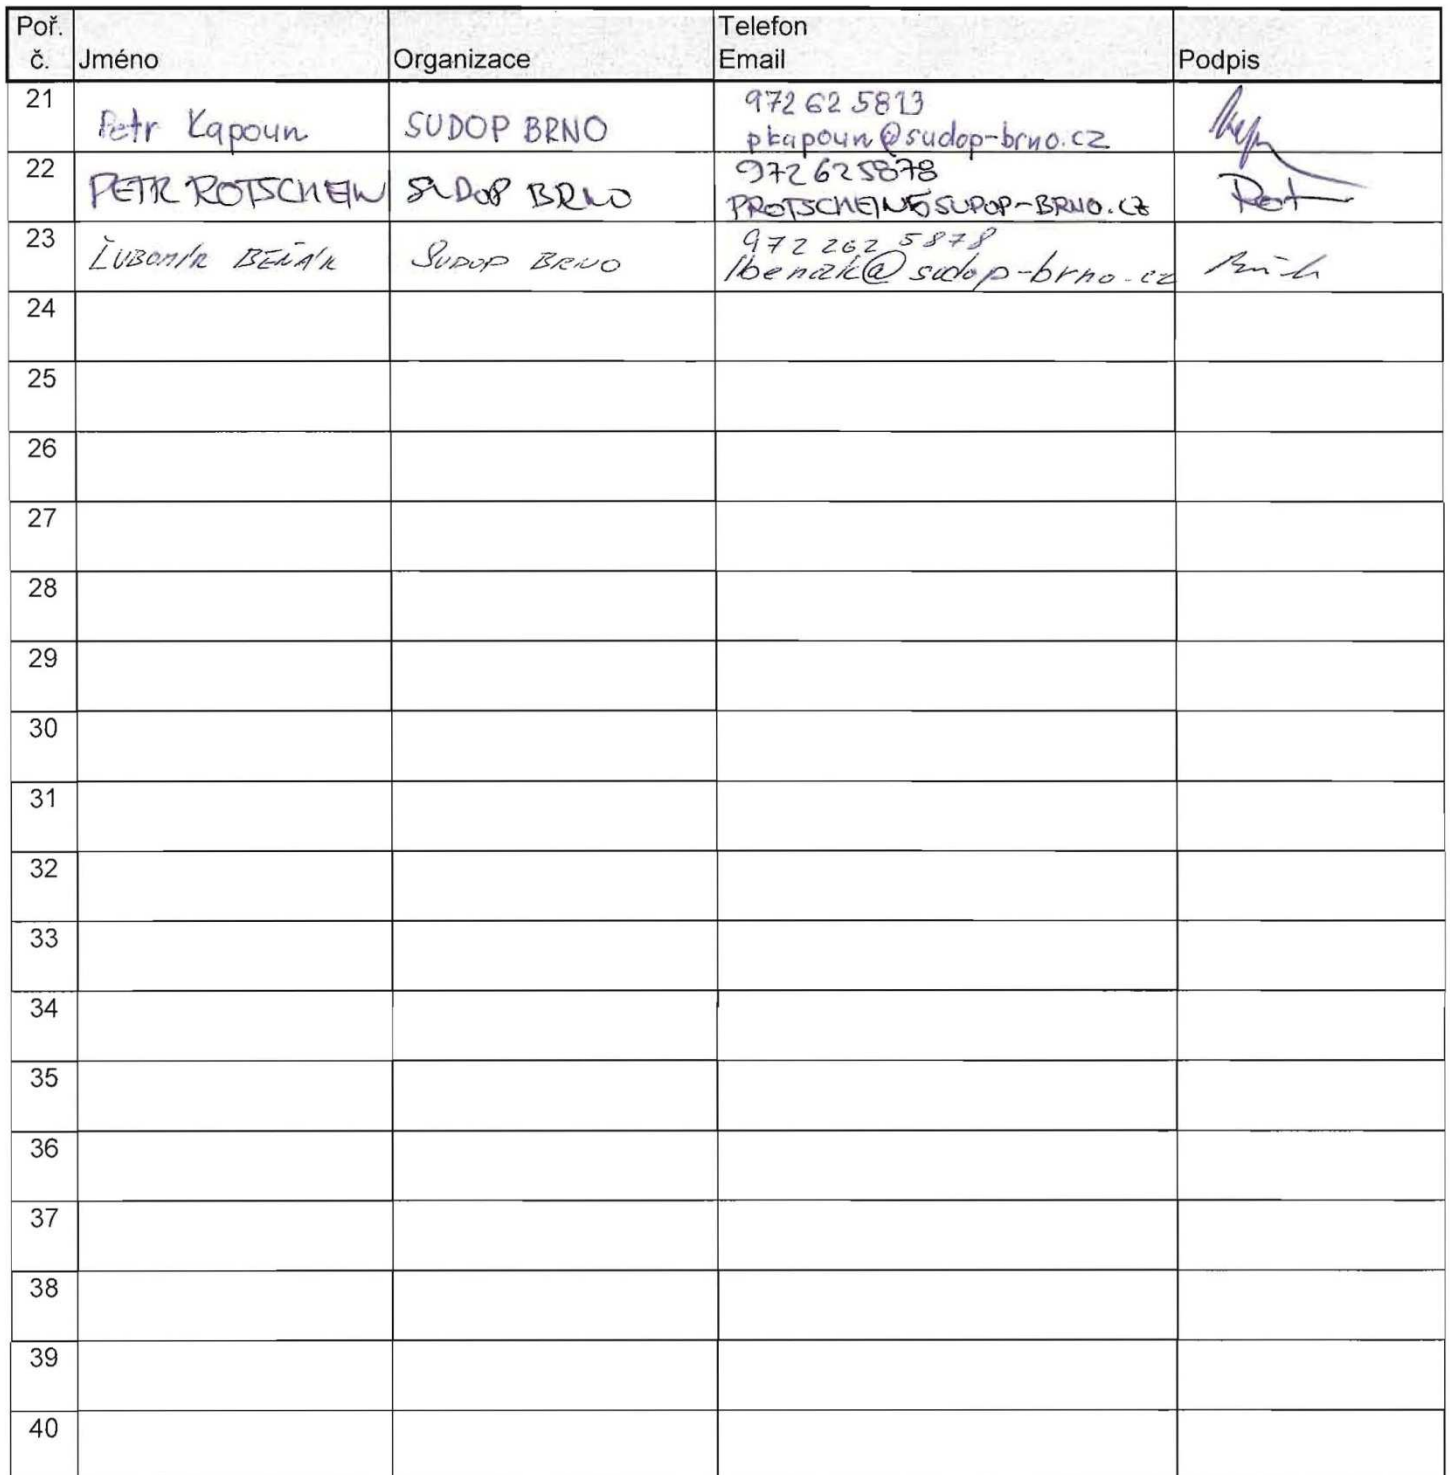 Poř. č. Jméno Organizace Telefon Email Podpis
21 Petr Kapoun SUDOP BRNO 972 62 5813 pkapoun@sudop-brno.cz
22 PETR ROTSCHEIN SUDOP BRNO 972625878 PROTSCHEIN@SUDOP-BRNO.CZ Rot
23 ĽUBOMÍR BEŇÁK SUDOP BRNO 972 262 5878 lbenak@sudop-brno.cz
24
25
26
27
28
29
30
31
32
33
34
35
36
37
38
39
40